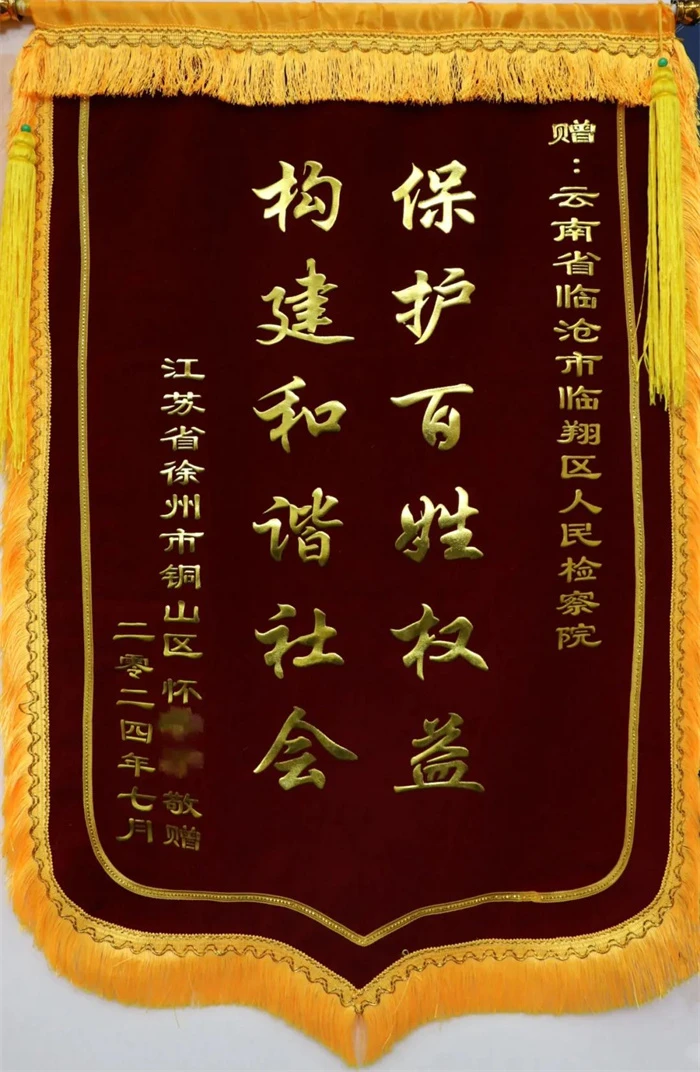 赠：云南省临沧市临翔区人民检察院
保护百姓权益
构建和谐社会
江苏省徐州市铜山区怀 敬赠
二零二四年七月